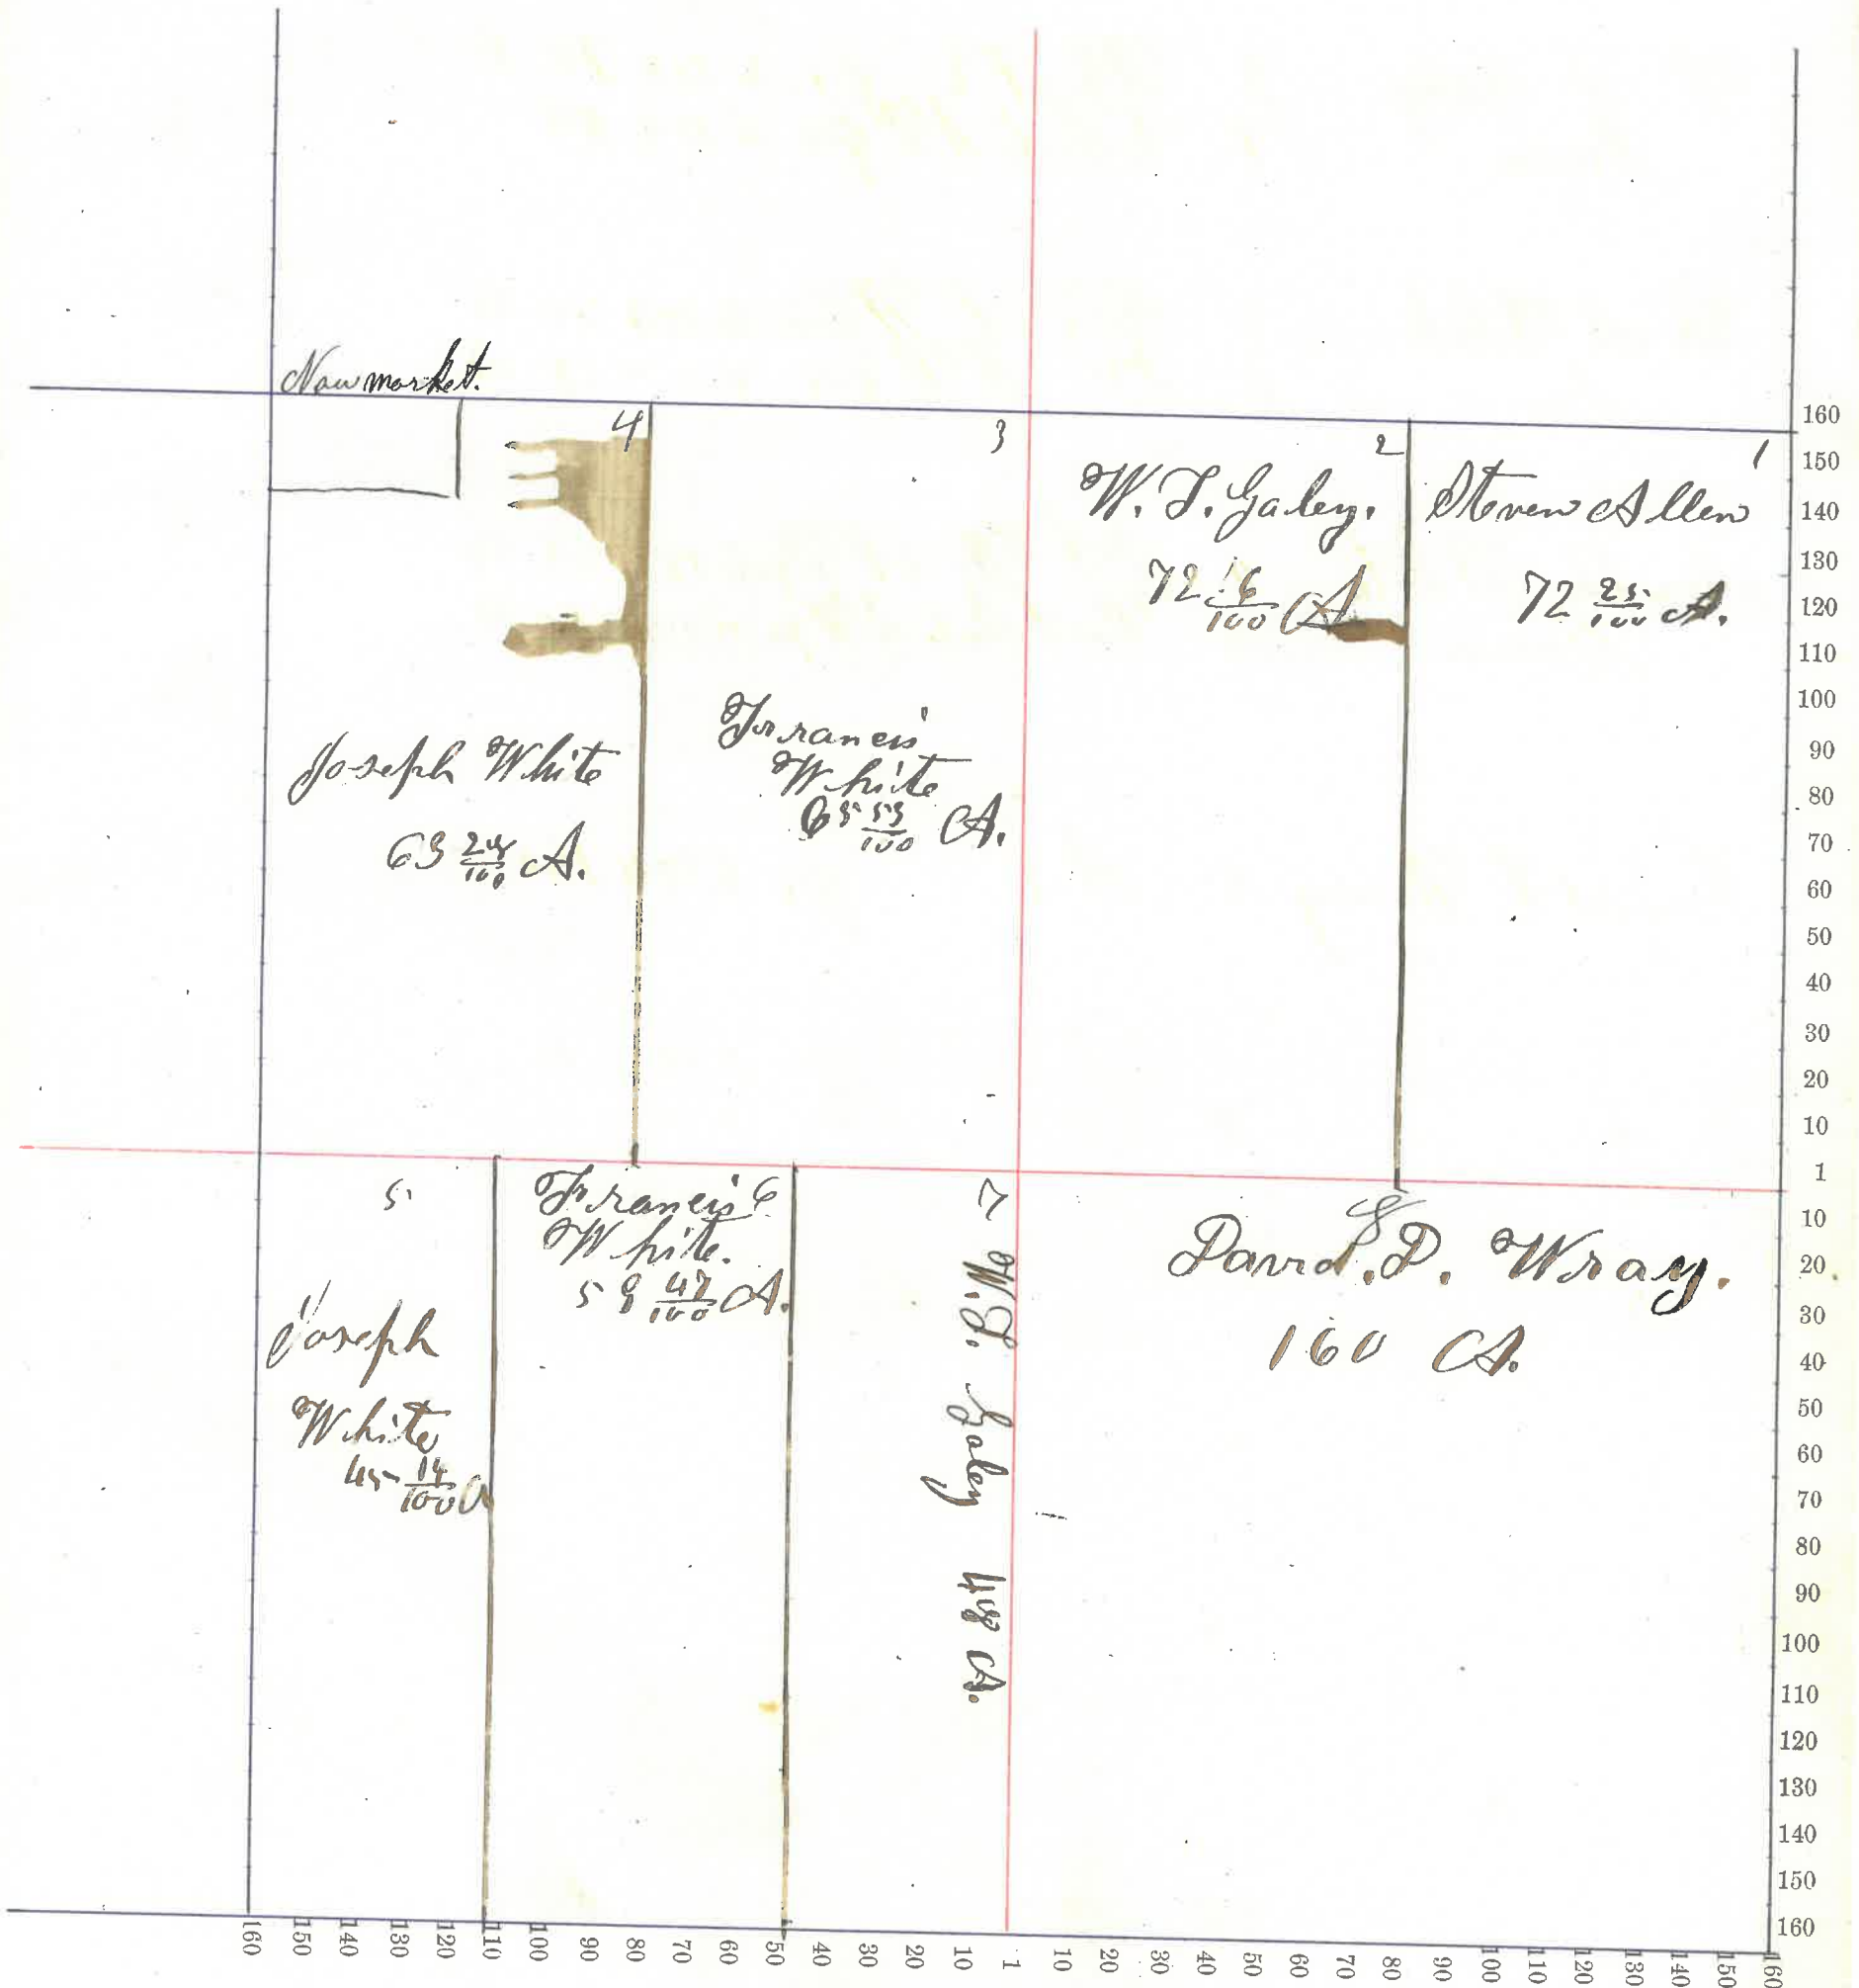 Newmarket.
4
3
2
1
W. T. Galey.
72 16/100 A
Steven Allen
72 25/100 A.
Joseph White
63 24/100 A.
Francis
White
65 53/100 A.
5
Joseph
White
45 14/100 A
6
Francis
White.
59 47/100 A.
7
W. T. Galey 48 A.
8
David. D. Wray.
160 A.
160
150
140
130
120
110
100
90
80
70
60
50
40
30
20
10
1
10
20
30
40
50
60
70
80
90
100
110
120
130
140
150
160
160
150
140
130
120
110
100
90
80
70
60
50
40
30
20
10
1
10
20
30
40
50
60
70
80
90
100
110
120
130
140
150
160